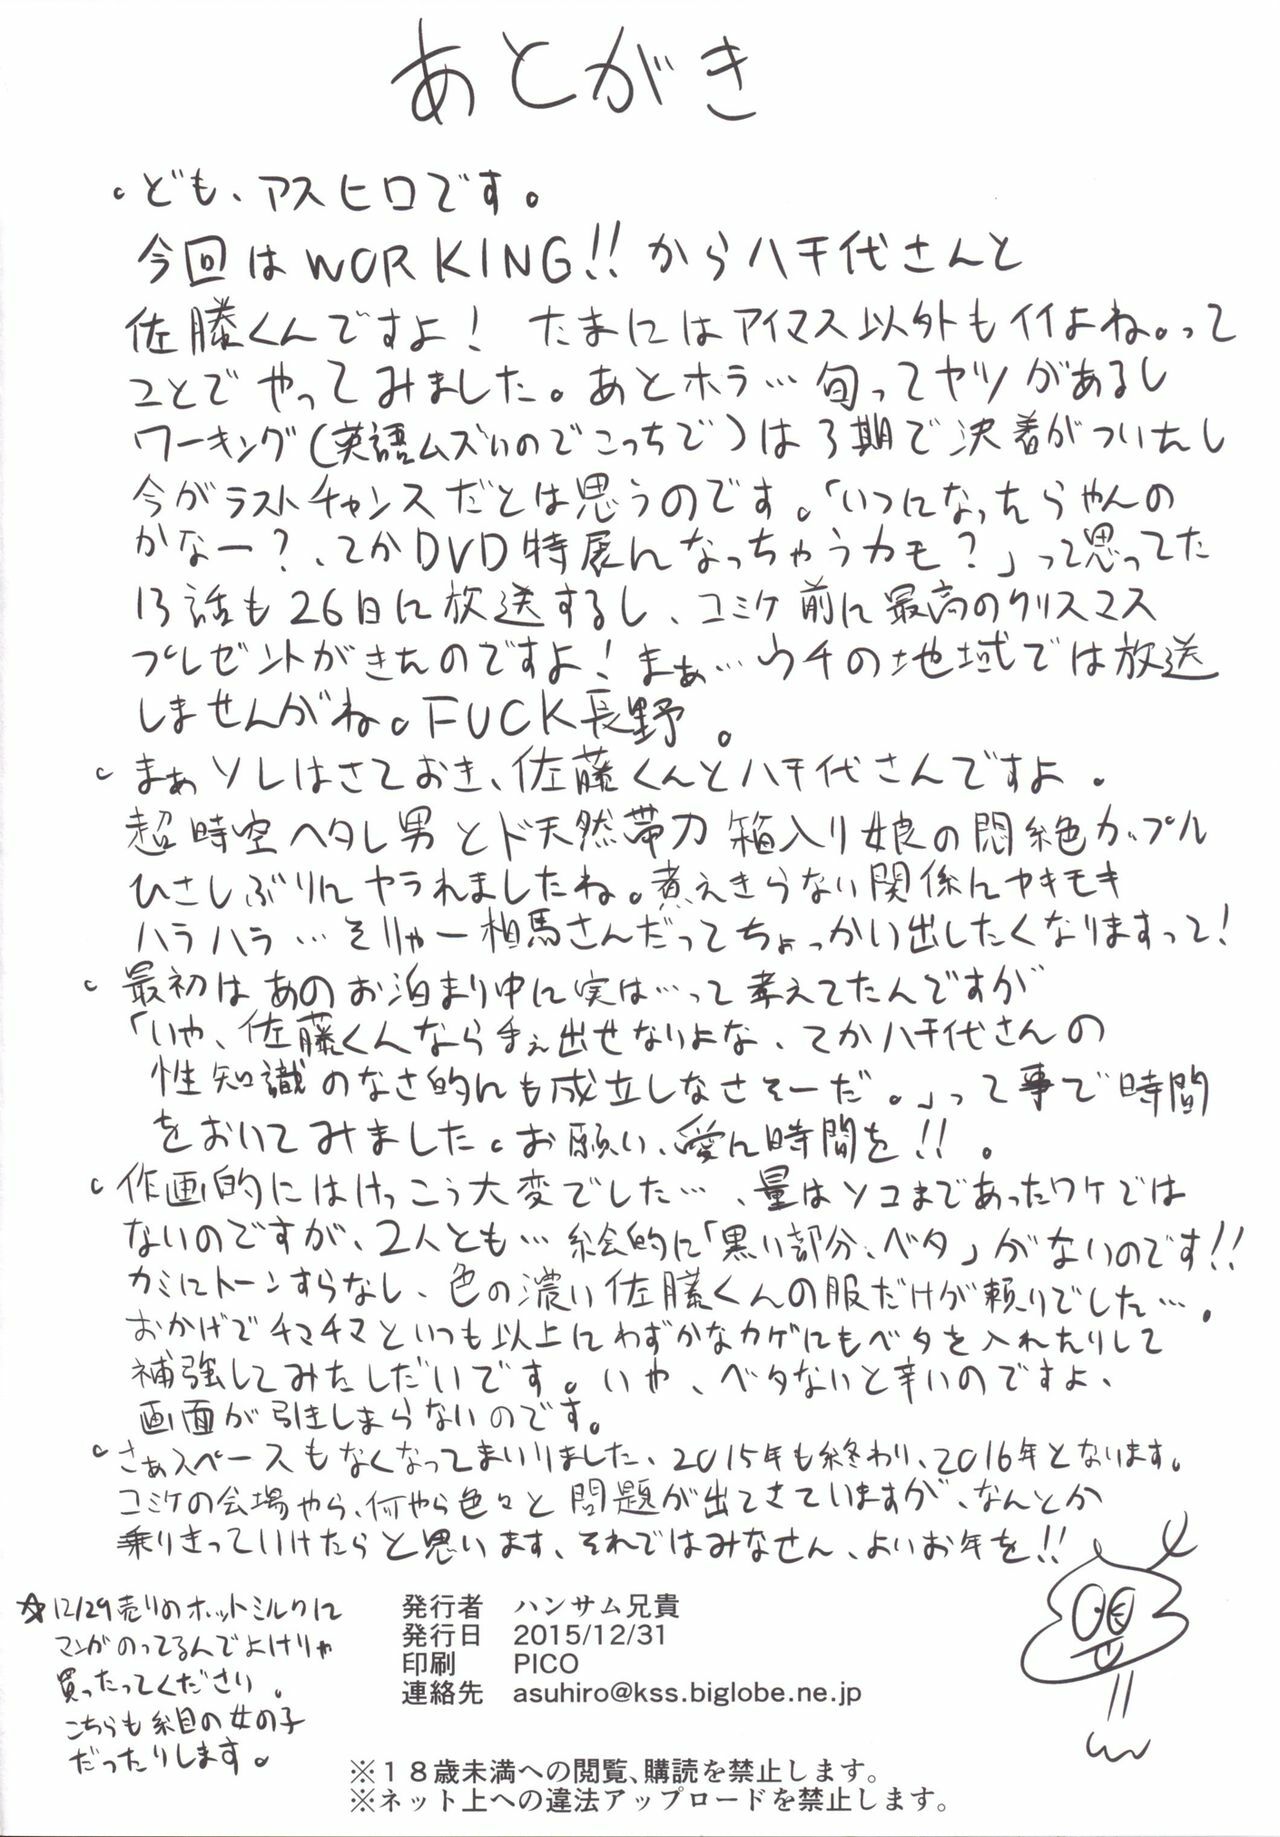 あとがき
。ども、アスヒロです。
今回はWORKING!!から八千代さんと
佐藤くんですよ! たまにはアイマス以外もイイよね。って
ことでやってみました。あとホラ…旬ってヤツがあるし
ワーキング(英語ムズいのでこっちで)は3期で決着がついたし
今がラストチャンスだとは思うのです。「いつになったらやんの
かなー?、てかDVD特展になっちゃうカモ?」って思ってた
13話も26日に放送するし、コミケ前に最高のクリスマス
プレゼントがきたのですよ!まぁ…ウチの地域では放送
しませんがね。FUCK長野。
。まぁソレはさておき、佐藤くんと八千代さんですよ。
超時空ヘタレ男とド天然帯刀箱入り娘の悶絶カップル
ひさしぶりにヤラれましたね。煮えきらない関係にヤキモキ
ハラハラ…そりゃー相馬さんだってちょっかい出したくなりますって!
。最初はあのお泊まり中に実は…って考えてたんですが
「いや、佐藤くんなら手ぇ出せないよな、てか八千代さんの
性知識のなさ的にも成立しなさそーだ。」って事で時間
をおいてみました。お願い、愛に時間を!!。
。作画的にはけっこう大変でした…、量はソコまであったワケでは
ないのですが、2人とも…絵的に「黒い部分、ベタ」がないのです!!
カミにトーンすらなし、色の濃い佐藤くんの服だけが頼りでした…。
おかげでチマチマといつも以上にわずかなカゲにもベタを入れたりして
補強してみたしだいです。いや、ベタないと辛いのですよ、
画面が引きしまらないのです。
。さぁスペースもなくなってまいりました、2015年も終わり、2016年となります。
コミケの会場やら、何やら色々と問題が出てきていますが、なんとか
乗りきっていけたらと思います、それではみなせん、よいお年を!!
☆12/29売りのホットミルクに
マンガのってるんでよけりゃ
買ったってください。
こちらも糸目の女の子
だったりします。
発行者 ハンサム兄貴
発行日 2015/12/31
印刷 PICO
連絡先 asuhiro@kss.biglobe.ne.jp
※18歳未満への閲覧、購読を禁止します。
※ネット上への違法アップロードを禁止します。